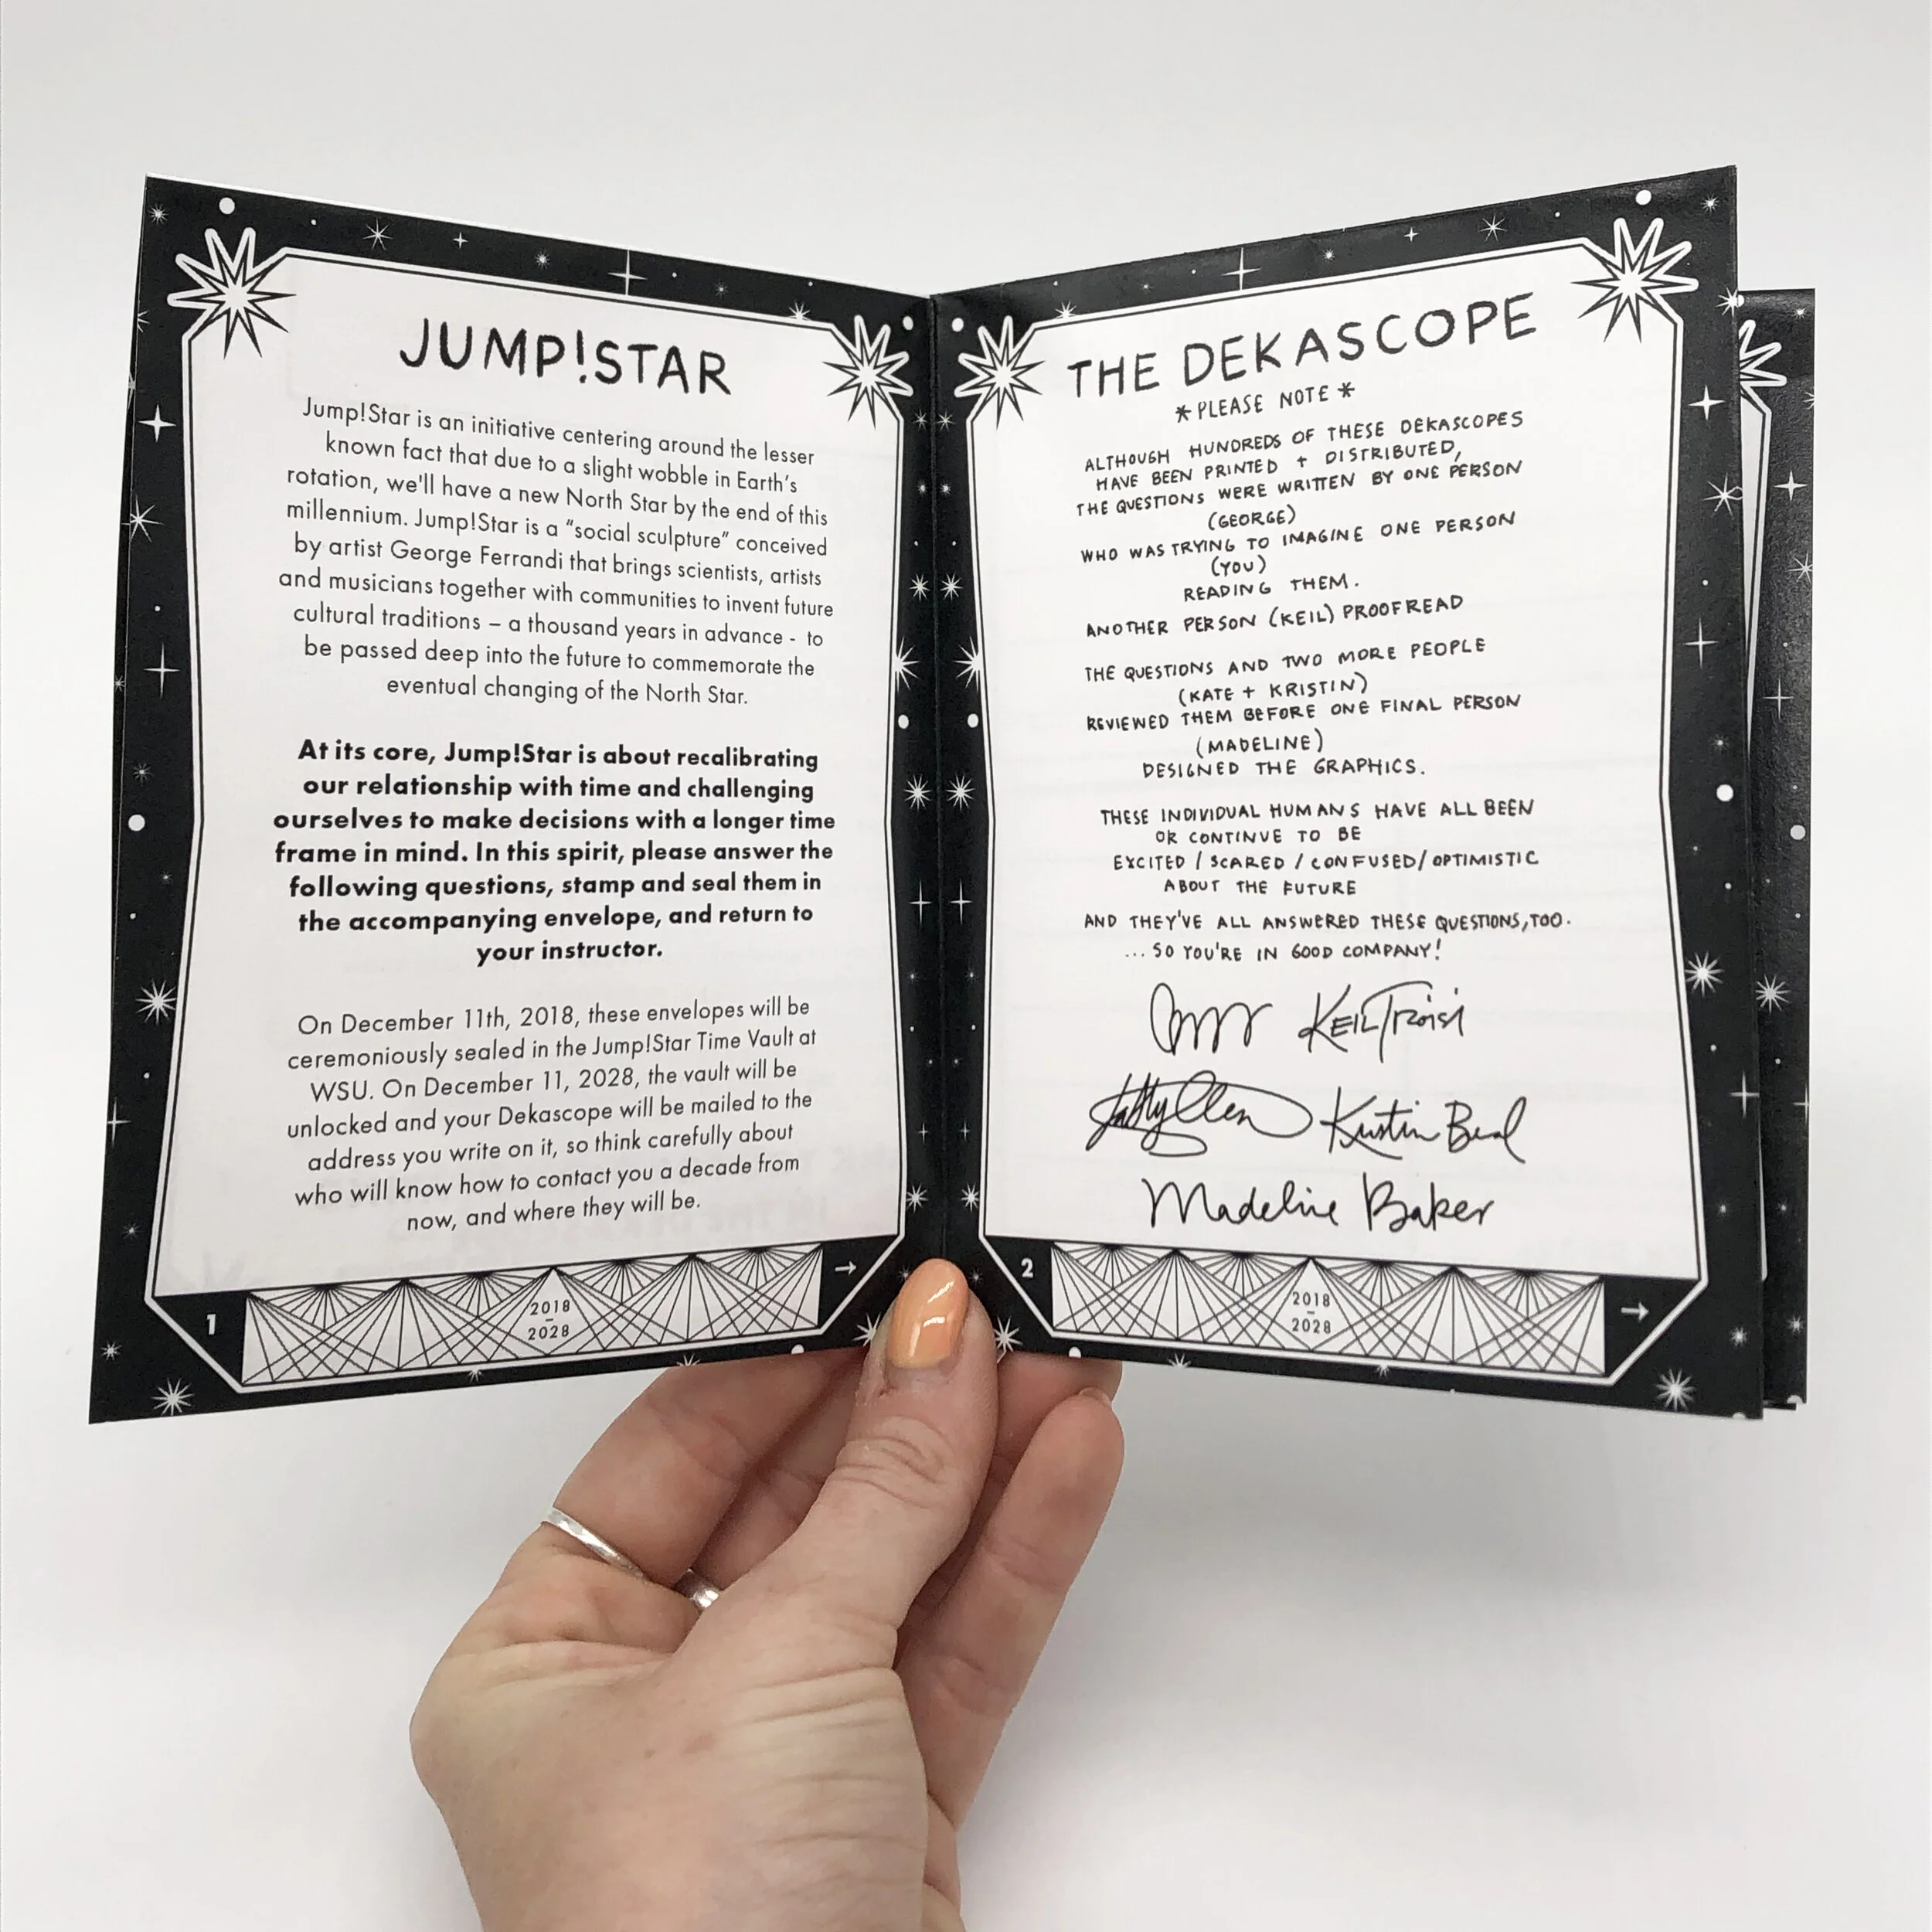 JUMP!STAR
Jump!Star is an initiative centering around the lesser
known fact that due to a slight wobble in Earth's
rotation, we'll have a new North Star by the end of this
millennium. Jump!Star is a “social sculpture” conceived
by artist George Ferrandi that brings scientists, artists
and musicians together with communities to invent future
cultural traditions – a thousand years in advance - to
be passed deep into the future to commemorate the
eventual changing of the North Star.
At its core, Jump!Star is about recalibrating
our relationship with time and challenging
ourselves to make decisions with a longer time
frame in mind. In this spirit, please answer the
following questions, stamp and seal them in
the accompanying envelope, and return to
your instructor.
On December 11th, 2018, these envelopes will be
ceremoniously sealed in the Jump!Star Time Vault at
WSU. On December 11, 2028, the vault will be
unlocked and your Dekascope will be mailed to the
address you write on it, so think carefully about
who will know how to contact you a decade from
now, and where they will be.
1
2018
–
2028
→
THE DEKASCOPE
*PLEASE NOTE*
ALTHOUGH HUNDREDS OF THESE DEKASCOPES
HAVE BEEN PRINTED + DISTRIBUTED,
THE QUESTIONS WERE WRITTEN BY ONE PERSON
(GEORGE)
WHO WAS TRYING TO IMAGINE ONE PERSON
(YOU)
READING THEM.
ANOTHER PERSON (KEIL) PROOFREAD
THE QUESTIONS AND TWO MORE PEOPLE
(KATE + KRISTIN)
REVIEWED THEM BEFORE ONE FINAL PERSON
(MADELINE)
DESIGNED THE GRAPHICS.
THESE INDIVIDUAL HUMANS HAVE ALL BEEN
OR CONTINUE TO BE
EXCITED / SCARED / CONFUSED / OPTIMISTIC
ABOUT THE FUTURE
AND THEY'VE ALL ANSWERED THESE QUESTIONS, TOO.
... SO YOU'RE IN GOOD COMPANY!
KEIL TROISI
Kristin Beal
Madeline Baker
2
2018
–
2028
→